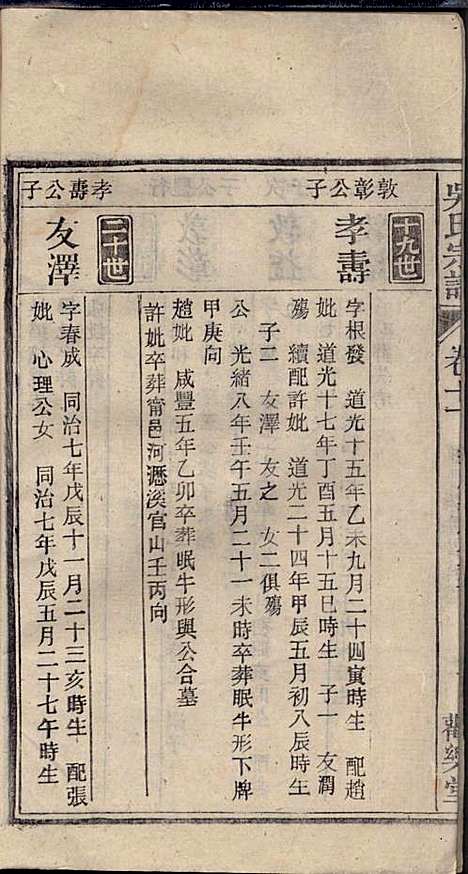 吳氏宗譜
卷十一
敦彰公子
十九世
孝壽
字根發 道光十五年乙未九月二十四寅時生 配趙
妣 道光十七年丁酉五月十五巳時生 子一 友潤
殤 續配許妣 道光二十四年甲辰五月初八辰時生
子二 友澤 友之 女二俱殤
公 光緒八年壬午五月二十一未時卒葬眠牛形下牌
甲庚向
趙妣 咸豐五年乙卯卒葬眠牛形與公合墓
許妣卒葬甯邑河瀝溪官山壬丙向
孝壽公子
二十世
友澤
字春成 同治七年戊辰十一月二十三亥時生 配張
妣 心理公女 同治七年戊辰五月二十七午時生